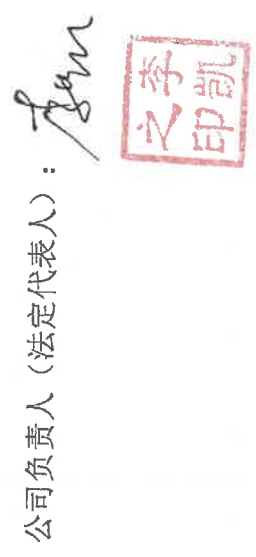 公司负责人（法定代表人）：
李凯之印